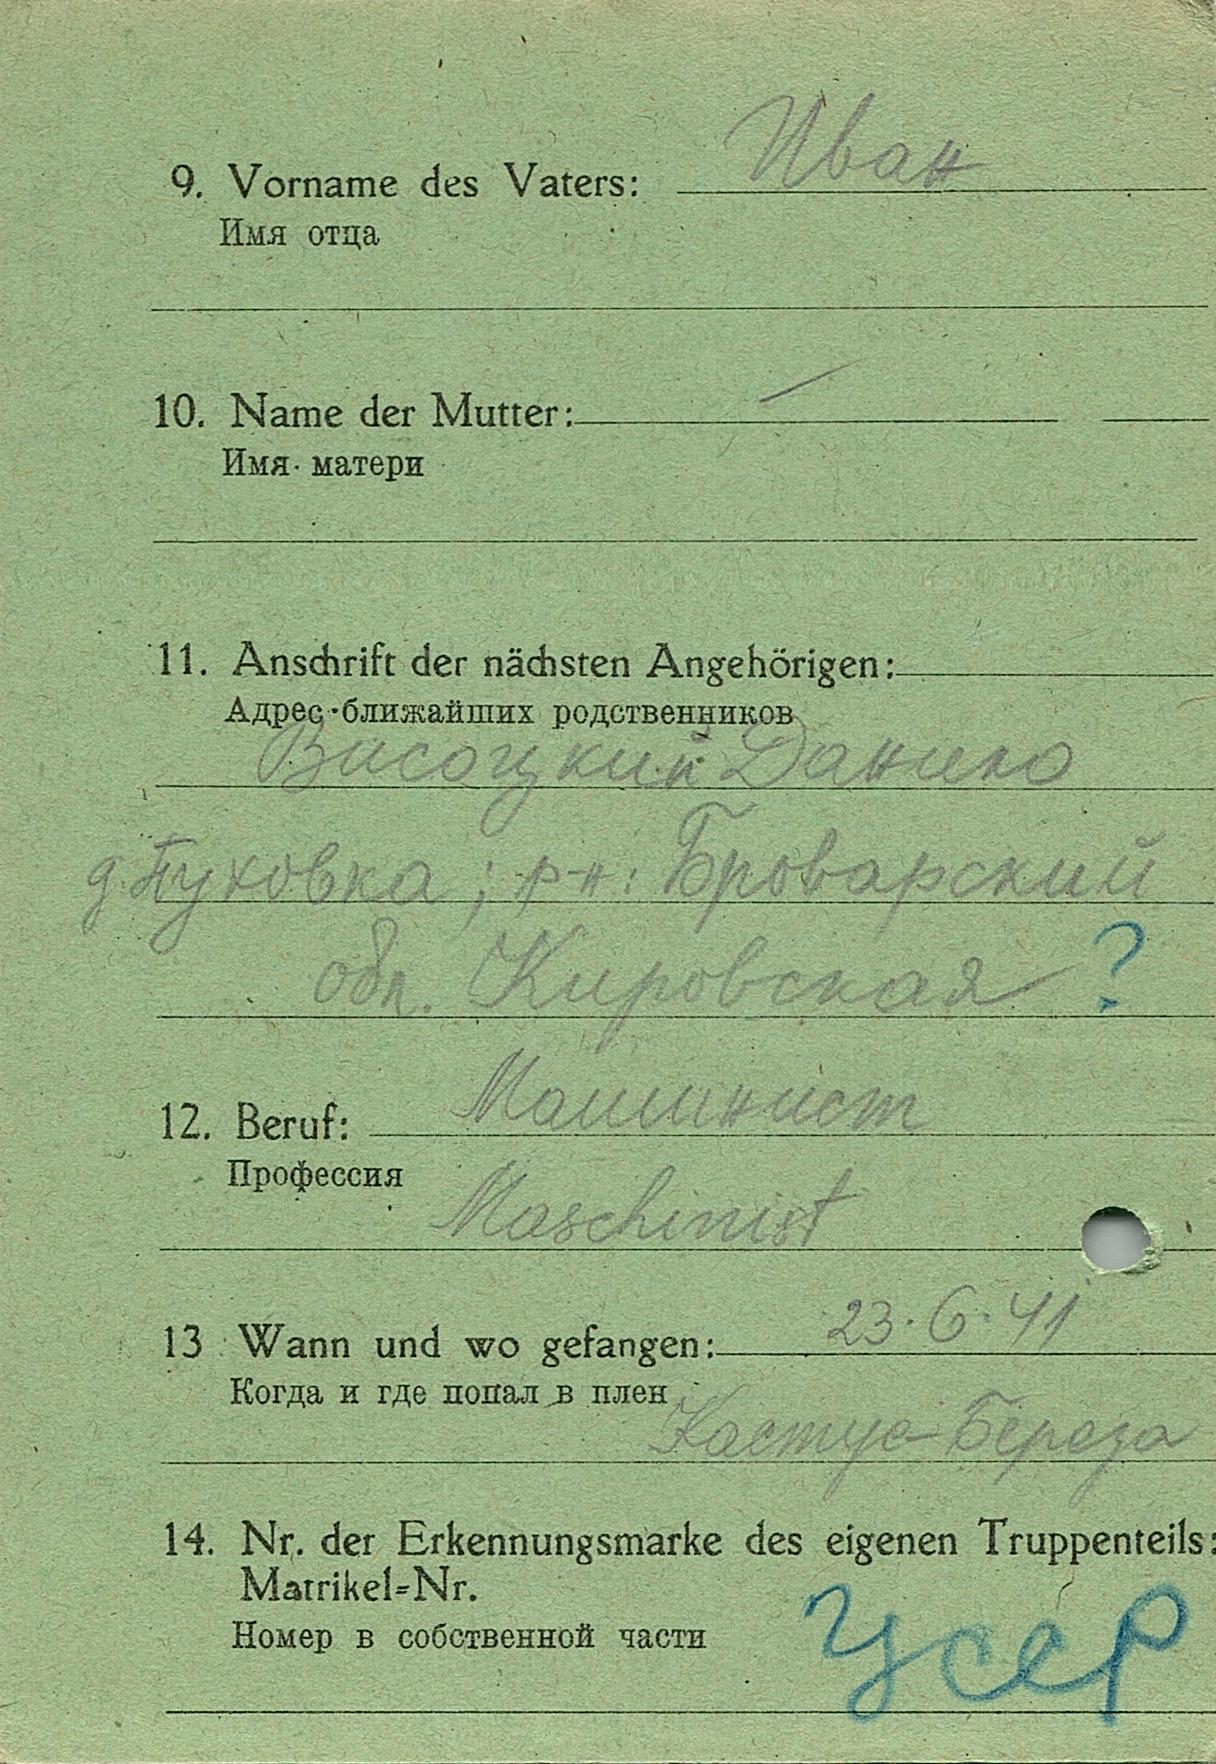 9. Vorname des Vaters: Иван
Имя отца
10. Name der Mutter: —
Имя матери
11. Anschrift der nächsten Angehörigen:
Адрес ближайших родственников
Висоцкий Данило
д. Пуховка; р-н: Броварский
обл. Кировская ?
12. Beruf: Машинист
Профессия
Maschinist
13 Wann und wo gefangen: 23.6.41
Когда и где попал в плен
Кастус-Береза
14. Nr. der Erkennungsmarke des eigenen Truppenteils:
Matrikel=Nr.
Номер в собственной части
Усср